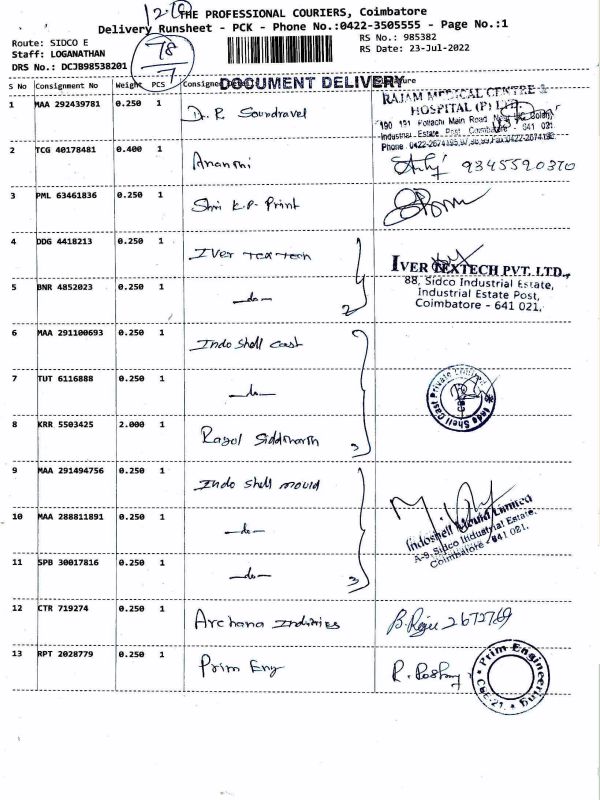 12-10
THE PROFESSIONAL COURIERS, Coimbatore
Delivery Runsheet - PCK - Phone No.:0422-3505555 - Page No.:1
Route: SIDCO E
Staff: LOGANATHAN
DRS No.: DCJB98538201
78
7
RS No.: 985382
RS Date: 23-Jul-2022
DOCUMENT DELIVERY
S No Consignment No Weight PCS Consignee
1 MAA 292439781 0.250 1 D.R. Soundravel
RAJAM MEDICAL CENTRE &
HOSPITAL (P) LTD.
190 191 Pollachi Main Road
Industrial Estate Post Coimbatore - 641 021.
2 TCG 40178481 0.400 1 Ananthi 9345520370
3 PML 63461836 0.250 1 Shri K.P. Print
4 DDG 4418213 0.250 1 Iver Tex Tech
5 BNR 4852023 0.250 1 -do- 2
IVER TEXTECH PVT. LTD.,
88, Sidco Industrial Estate,
Industrial Estate Post,
Coimbatore - 641 021.
6 MAA 291100693 0.250 1 Indo Shell Cast
7 TUT 6116888 0.250 1 -do-
Indo Shell Cast Private Limited
8 KRR 5503425 2.000 1 Siddharth 3
9 MAA 291494756 0.250 1 Indo Shell mould
10 MAA 288811891 0.250 1 -do-
Indoshell Mould Limited
A-9, Sidco Industrial Estate,
Coimbatore - 641 021.
11 SPB 30017816 0.250 1 -do- 3
12 CTR 719274 0.250 1 Archana
13 RPT 2028779 0.250 1 Prim Eng
Prim Engineering
CBE-21.